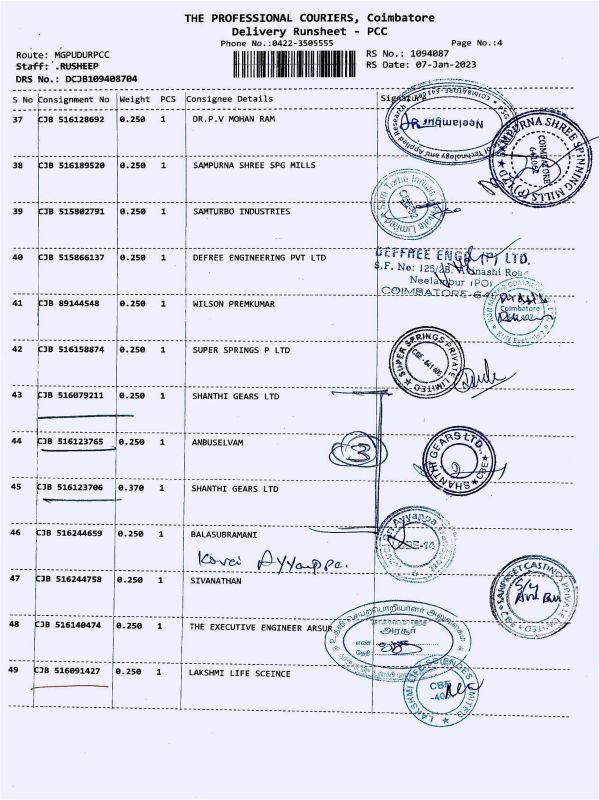 THE PROFESSIONAL COURIERS, Coimbatore
Delivery Runsheet - PCC
Phone No.:0422-3505555 Page No.:4
Route: MGPUDURPCC RS No.: 1094087
Staff: .RUSHEEP RS Date: 07-Jan-2023
DRS No.: DCJB109408704
S No Consignment No Weight PCS Consignee Details Signature
37 CJB 516128692 0.250 1 DR.P.V MOHAN RAM
Neelambur
of Technology and Applied Research
38 CJB 516189520 0.250 1 SAMPURNA SHREE SPG MILLS
SAMPURNA SHREE SPINNING MILLS (P) LTD
COIMBATORE
39 CJB 515802791 0.250 1 SAMTURBO INDUSTRIES
Sam Turbo Industry Private Limited
40 CJB 515866137 0.250 1 DEFREE ENGINEERING PVT LTD
DEFFREE ENGG (P) LTD.
S.F. No: 125/2B, Avinashi Road
Neelambur (PO)
COIMBATORE-641
41 CJB 89144548 0.250 1 WILSON PREMKUMAR
Coimbatore
42 CJB 516158874 0.250 1 SUPER SPRINGS P LTD
SUPER SPRINGS PRIVATE LIMITED
43 CJB 516079211 0.250 1 SHANTHI GEARS LTD
44 CJB 516123765 0.250 1 ANBUSELVAM
3
SHANTHI GEARS LTD., CBE
45 CJB 516123706 0.370 1 SHANTHI GEARS LTD
46 CJB 516244659 0.250 1 BALASUBRAMANI
Kovai Ayyappa.
Ayyappa
CBE-14
47 CJB 516244758 0.250 1 SIVANATHAN
48 CJB 516140474 0.250 1 THE EXECUTIVE ENGINEER ARSUR
உதவி செயற்பொறியாளர் அலுவலகம்
அரசூர்
எண்
தேதி
49 CJB 516091427 0.250 1 LAKSHMI LIFE SCEINCE
LAKSHMI LIFE SCIENCES LIMITED
CBE